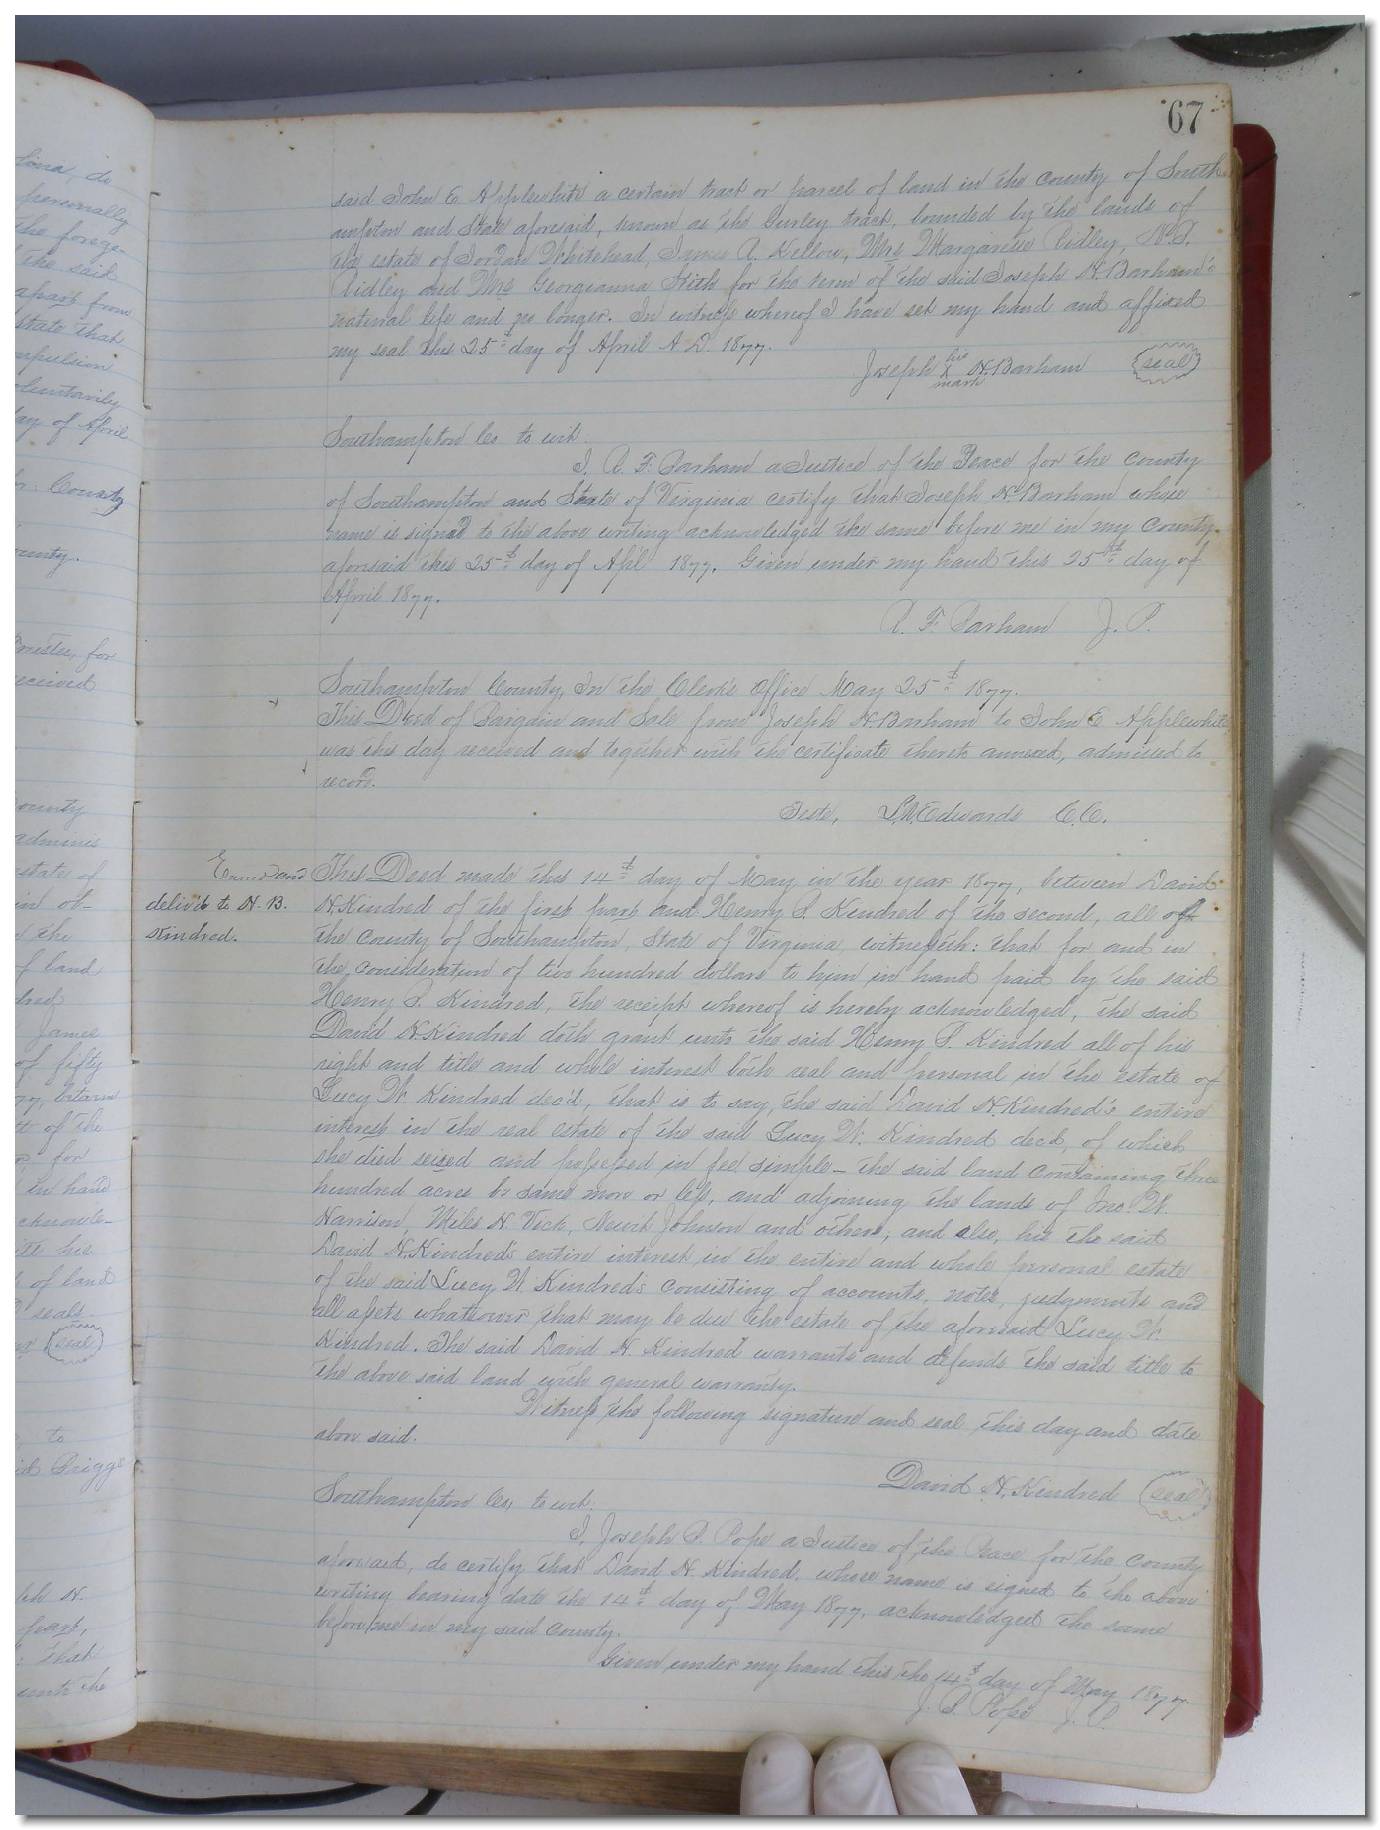 67
said John E. Applewhite a certain tract or parcel of land in the County of South
ampton and State aforesaid, known as the Gurley tract, bounded by the lands of
the estate of Jordan Whitehead, James A. Kellow, Mrs Margarette Ridley, N.T.
Ridley and Mrs Georgeanna Stith for the term of the said Joseph N. Barham's
natural life and no longer. In witness whereof I have set my hand and affixed
my seal this 25th day of April A.D. 1877.
Joseph his X mark N. Barham (seal)
Southampton Co. to wit.
I, R. F. Parham a Justice of the Peace for the County
of Southampton and State of Virginia certify that Joseph N. Barham whose
name is signed to the above writing acknowledged the same before me in my County
aforesaid this 25th day of Apl 1877. Given under my hand this 25th day of
April 1877.
R. F. Parham J. P.
Southampton County, In the Clerk's Office May 25th 1877.
This Deed of Bargain and Sale from Joseph N. Barham to John E Applewhite
was this day received and together with the certificate thereto annexed, admitted to
record.
Teste, L.R. Edwards C.C.
Exmd and
delivd to H. B.
Kindred.
This Deed made this 14th day of May in the year 1877, between David
N. Kindred of the first part and Henry S. Kindred of the second, all of
the County of Southampton, State of Virginia, witnesseth: that for and in
the consideration of two hundred dollars to him in hand paid by the said
Henry S. Kindred, the receipt whereof is hereby acknowledged, the said
David N. Kindred doth grant unto the said Henry S. Kindred all of his
right and title and whole interest both real and personal in the estate of
Lucy W. Kindred dec'd, that is to say, the said David N. Kindred's entire
interest in the real estate of the said Lucy W. Kindred decd, of which
she died seised and possessed in fee simple - the said land containing three
hundred acres be same more or less, and adjoining the lands of Jno. W.
Harrison, Miles N. Vick, Newit Johnson and others, and also, his the said
David N. Kindred's entire interest in the entire and whole personal estate
of the said Lucy W. Kindred's consisting of accounts, notes, judgments and
all assets whatsoever that may be due the estate of the aforesaid Lucy W.
Kindred. The said David N. Kindred warrants and defends the said title to
the above said land with general warranty.
Witness the following signature and seal this day and date
above said.
David N. Kindred (seal)
Southampton Co, to wit.
I, Joseph S. Pope a Justice of the Peace for the County
aforesaid, do certify that David N. Kindred, whose name is signed to the above
writing bearing date the 14th day of May 1877, acknowledged the same
before me in my said County.
Given under my hand this the 14th day of May 1877.
J. S. Pope J. P.